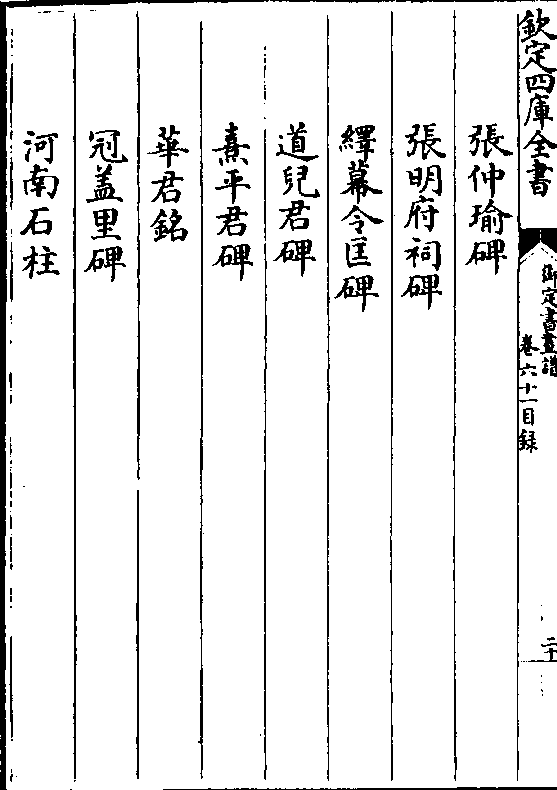 欽定四庫全書
御定書畫譜
卷六十一目録
二十
張仲瑜碑
張明府祠碑
繹幕令匡碑
道兒君碑
熹平君碑
華君銘
冠盖里碑
河南石柱